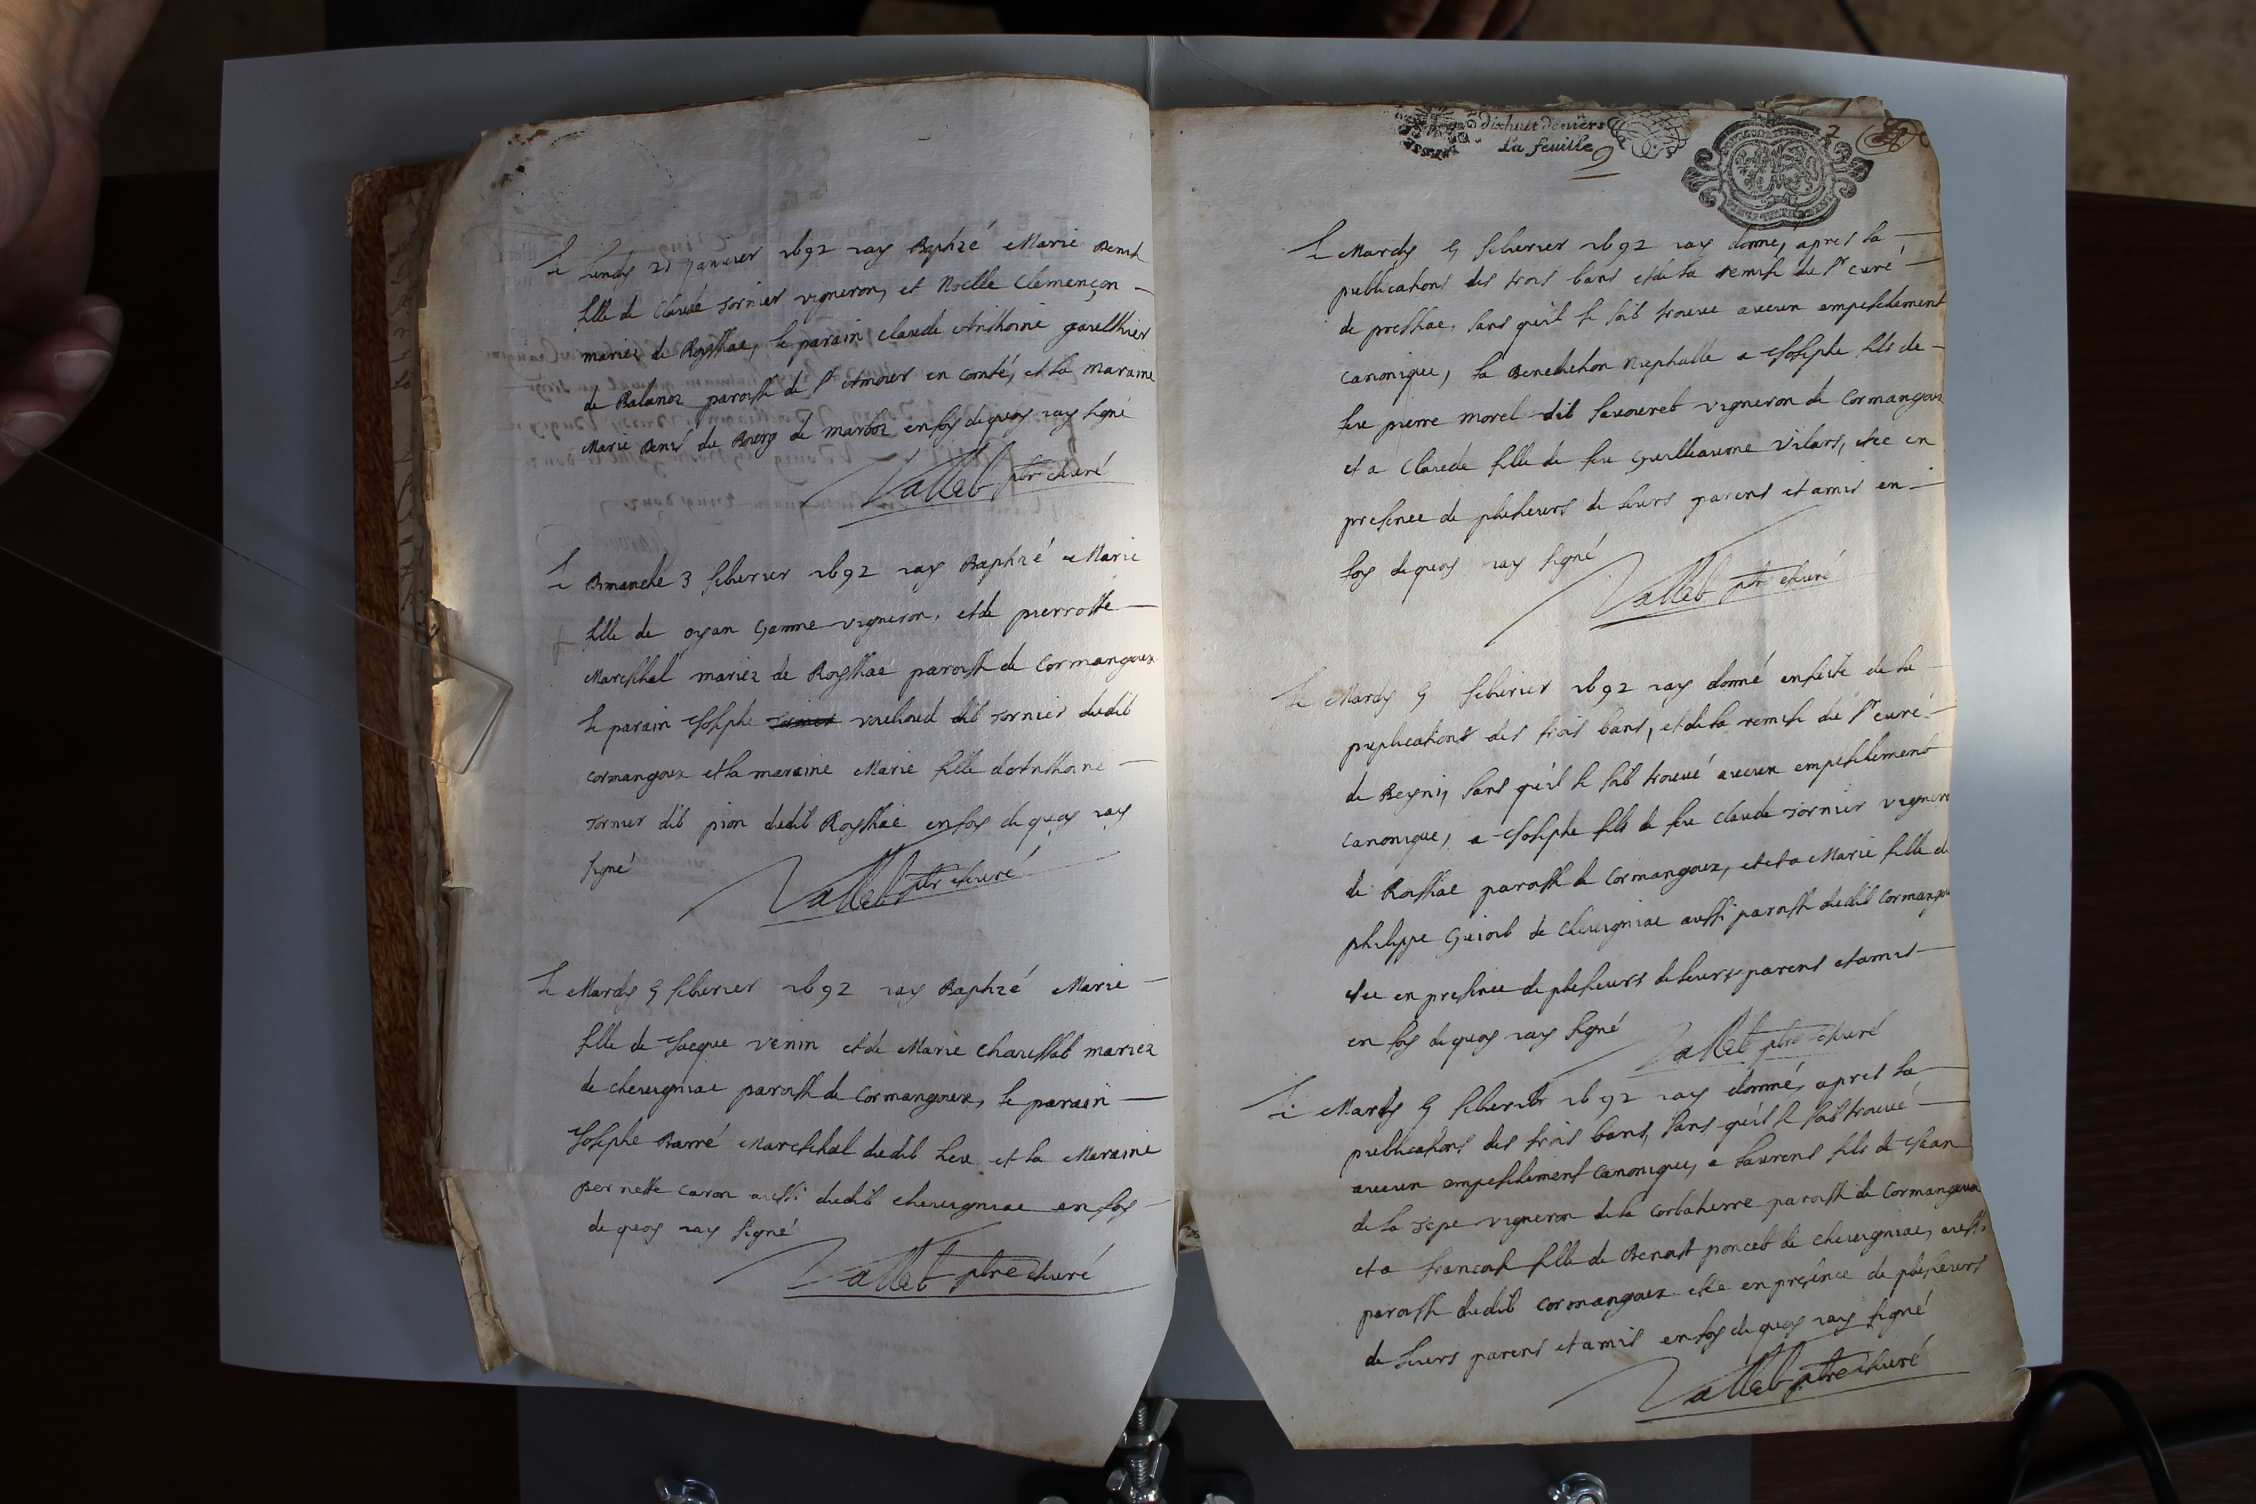 Le Lundy 21 janvier 1692 iay Baptizé Marie Denise
fille de Claude Tornier vigneron, et Noelle Clemençon
mariez de Roissiac, le parain Claude Anthoine gaulthier
de Balanoz paroisse de St Amour en Comté, et la maraine
Marie Denis du Bourg de marboz en foy de quoy iay signé
Vallet ptre curé
Le Dimanche 3 febvrier 1692 iay Baptizé Marie
fille de oyan Gamme vigneron, et de pierrotte
Mareschal mariez de Roissiac paroisse de Cormangoux
le parain Joseph vouhoud dit Tornier dudit
Cormangoux et la maraine Marie fille d'Anthoine
Tornier dit pion dudit Roissiac en foy de quoy iay
signé
Vallet ptre curé
Le Mardy 5 febvrier 1692 iay Baptizé Marie
fille de Jacque venin et de Marie Chaussat mariez
de chevigniac paroisse de Cormangoux, le parain
Josephe Barré Mareschal dudit lieu et la Maraine
pernette caron aussi dudit chevigniac en foy
de quoy iay signé
Vallet ptre curé
dixhuit deniers
La feuille
2
Le Mardy 5 febvrier 1692 iay donné, apres la
publications des trois bans et de la remise du Sr curé
de pressiac, sans quil se soit trouvé aucun empeschement
canonique, la Benediction Nuptialle a Josephe fils de
feu pierre morel dit savouret vigneron de Cormangoux
et a Claude fille de feu Guilleaume vilars, etce en
presence de plusieurs de leurs parens et amis en
foy de quoy iay signé
Vallet ptre curé
Le Mardy 5 febvrier 1692 iay donné en suite de la
puplications des trois bans, et de la remise du Sr curé
de Beyni, sans quil se soit trouvé aucun empeschement
canonique, a Josephe fils de feu Claude Tornier vigneron
de Roissiac paroisse de Cormangoux, et a Marie fille de
philippe Guiost de chevigniac aussi paroisse dudit Cormangoux
etce en presence de plusieurs de leurs parens et amis
en foy de quoy iay signé
Vallet ptre curé
Le Mardy 5 febvrier 1692 iay donné, apres la
publications des trois bans, sans quil se soit trouvé
aucun empeschement canonique, a Laurens fils de Jean
de la Tepe vigneron de la Corbatiere paroisse de Cormangoux
et a francoise fille de Benoist poncet de chevigniac, aussi
paroisse dudit Cormangoux etce en presence de plusieurs
de leurs parens et amis en foy de quoy iay signé
Vallet ptre curé